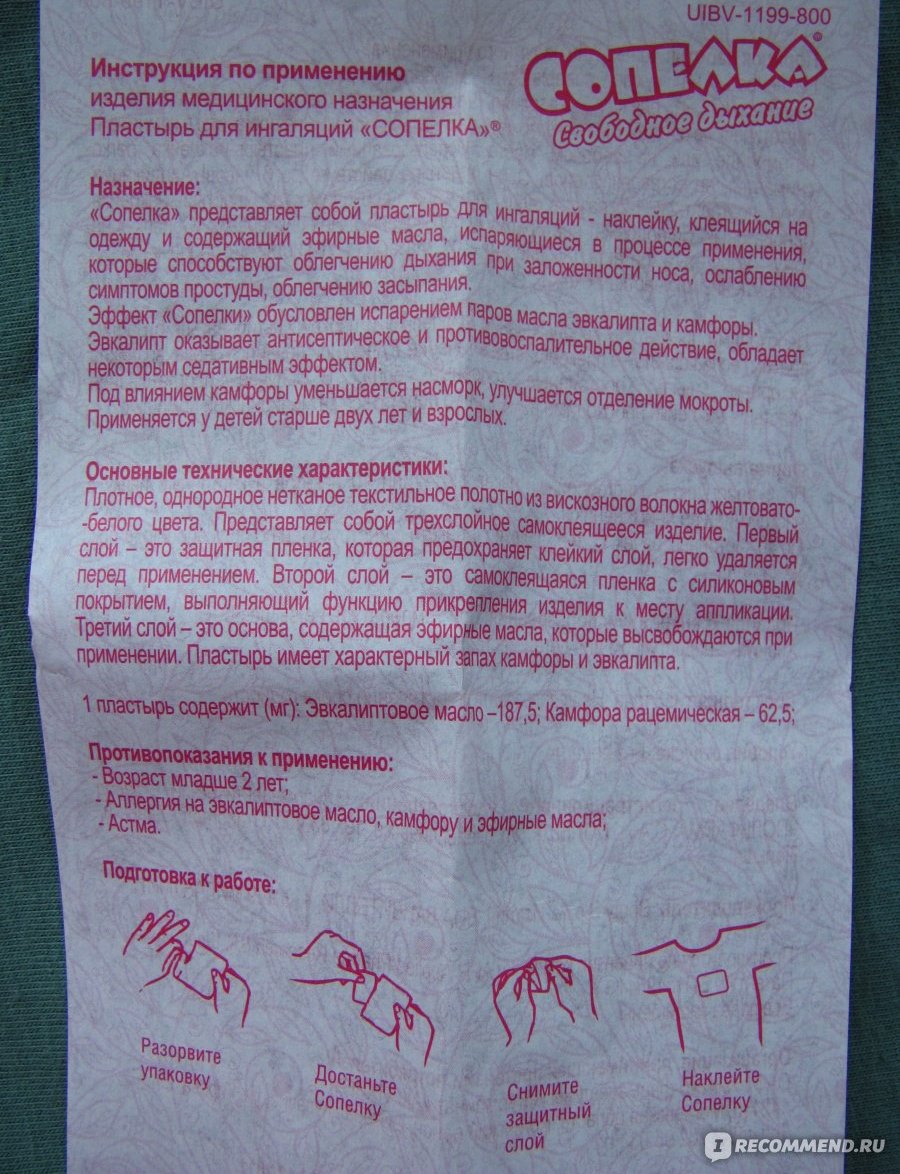 UIBV-1199-800
СОПЕЛКА®
Свободное дыхание
Инструкция по применению
изделия медицинского назначения
Пластырь для ингаляций «СОПЕЛКА»®
Назначение:
«Сопелка» представляет собой пластырь для ингаляций - наклейку, клеящийся на
одежду и содержащий эфирные масла, испаряющиеся в процессе применения,
которые способствуют облегчению дыхания при заложенности носа, ослаблению
симптомов простуды, облегчению засыпания.
Эффект «Сопелки» обусловлен испарением паров масла эвкалипта и камфоры.
Эвкалипт оказывает антисептическое и противовоспалительное действие, обладает
некоторым седативным эффектом.
Под влиянием камфоры уменьшается насморк, улучшается отделение мокроты.
Применяется у детей старше двух лет и взрослых.
Основные технические характеристики:
Плотное, однородное нетканое текстильное полотно из вискозного волокна желтовато-
-белого цвета. Представляет собой трехслойное самоклеящееся изделие. Первый
слой – это защитная пленка, которая предохраняет клейкий слой, легко удаляется
перед применением. Второй слой – это самоклеящаяся пленка с силиконовым
покрытием, выполняющий функцию прикрепления изделия к месту аппликации.
Третий слой – это основа, содержащая эфирные масла, которые высвобождаются при
применении. Пластырь имеет характерный запах камфоры и эвкалипта.
1 пластырь содержит (мг): Эвкалиптовое масло –187,5; Камфора рацемическая – 62,5;
Противопоказания к применению:
- Возраст младше 2 лет;
- Аллергия на эвкалиптовое масло, камфору и эфирные масла;
- Астма.
Подготовка к работе:
Разорвите
упаковку
Достаньте
Сопелку
Снимите
защитный
слой
Наклейте
Сопелку
IRECOMMEND.RU